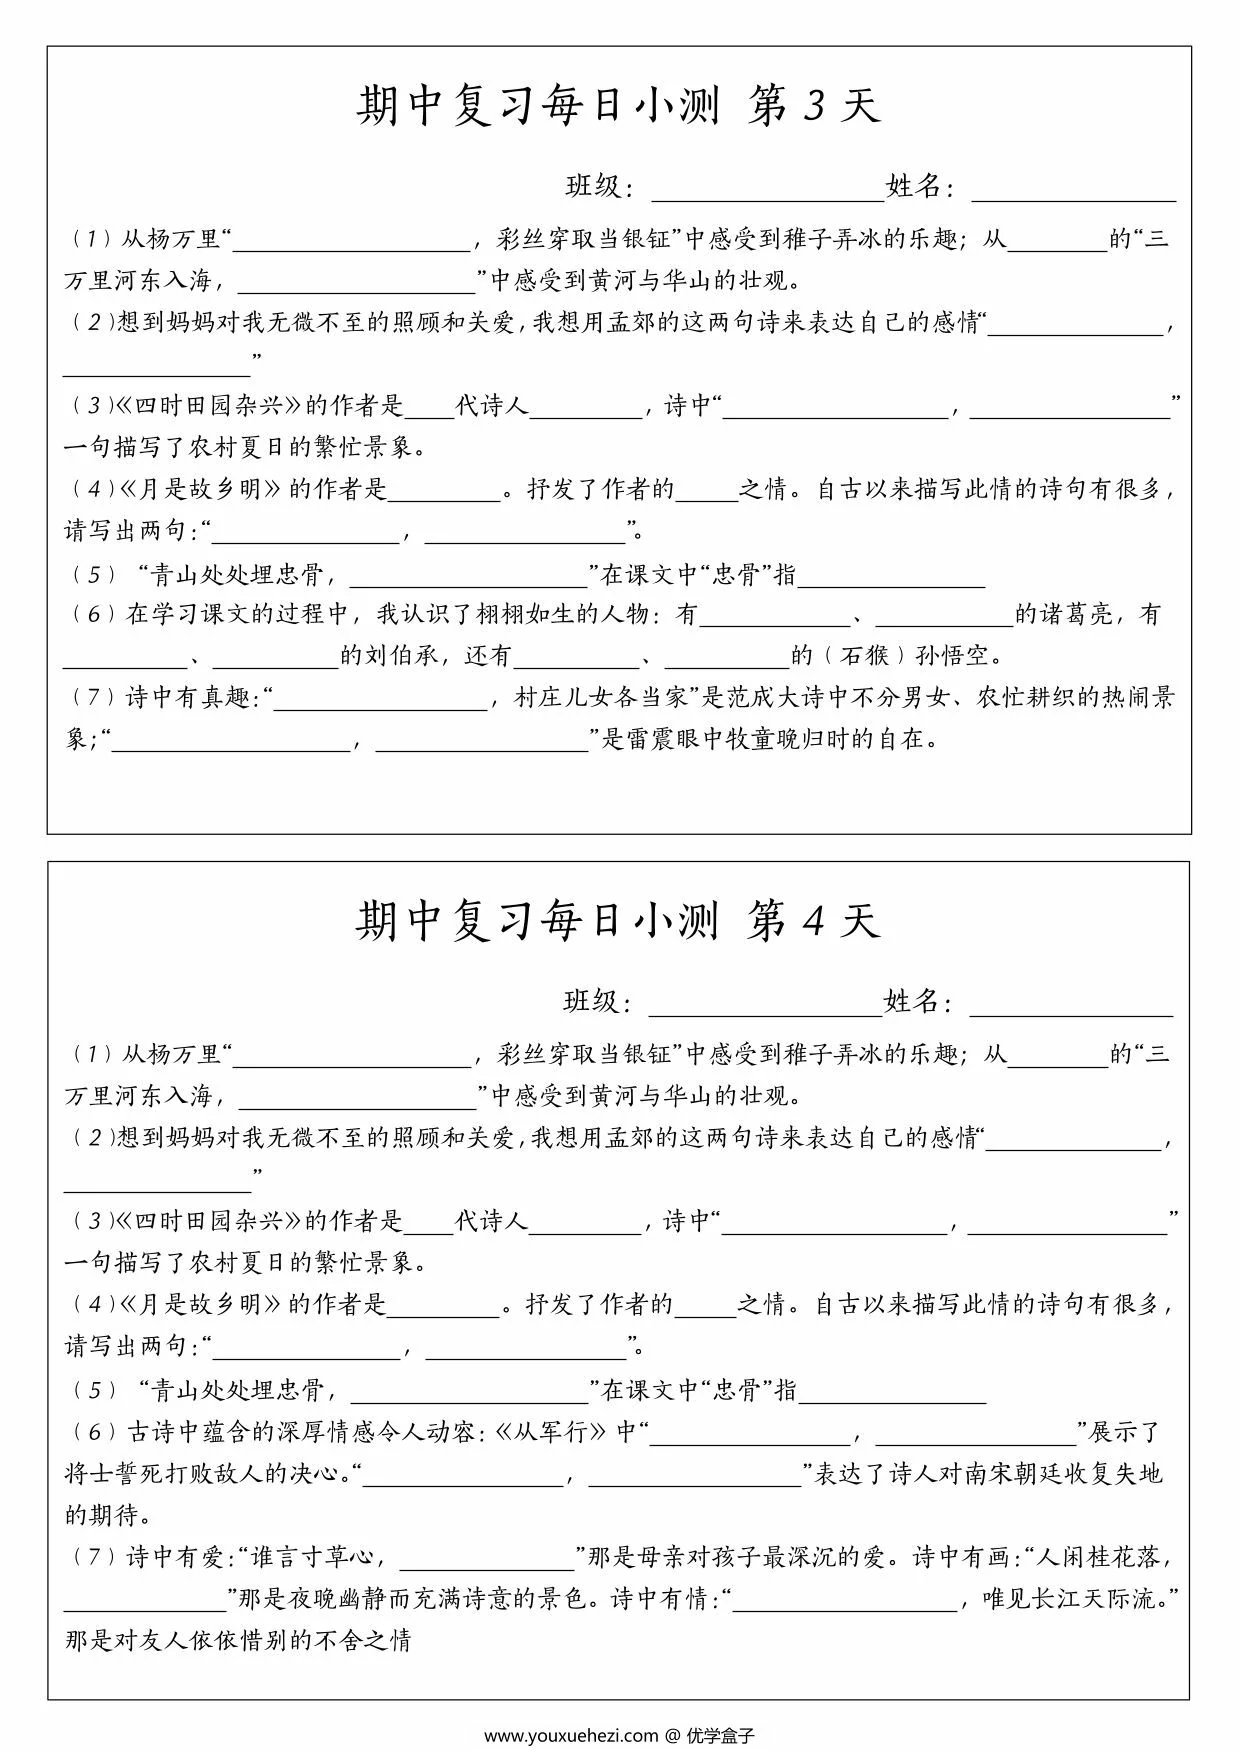 期中复习每日小测 第 3 天
班级：__________姓名：__________
（1）从杨万里“__________，彩丝穿取当银钲”中感受到稚子弄冰的乐趣；从______的“三
万里河东入海，__________”中感受到黄河与华山的壮观。
（2）想到妈妈对我无微不至的照顾和关爱，我想用孟郊的这两句诗来表达自己的感情“__________，
__________”
（3）《四时田园杂兴》的作者是____代诗人______，诗中“__________，__________”
一句描写了农村夏日的繁忙景象。
（4）《月是故乡明》的作者是______。抒发了作者的____之情。自古以来描写此情的诗句有很多，
请写出两句：“__________，__________”。
（5）“青山处处埋忠骨，__________”在课文中“忠骨”指__________
（6）在学习课文的过程中，我认识了栩栩如生的人物：有________、________的诸葛亮，有
________、________的刘伯承，还有________、________的（石猴）孙悟空。
（7）诗中有真趣：“__________，村庄儿女各当家”是范成大诗中不分男女、农忙耕织的热闹景
象；“__________，__________”是雷震眼中牧童晚归时的自在。
期中复习每日小测 第 4 天
班级：__________姓名：__________
（1）从杨万里“__________，彩丝穿取当银钲”中感受到稚子弄冰的乐趣；从______的“三
万里河东入海，__________”中感受到黄河与华山的壮观。
（2）想到妈妈对我无微不至的照顾和关爱，我想用孟郊的这两句诗来表达自己的感情“__________，
__________”
（3）《四时田园杂兴》的作者是____代诗人______，诗中“__________，__________”
一句描写了农村夏日的繁忙景象。
（4）《月是故乡明》的作者是______。抒发了作者的____之情。自古以来描写此情的诗句有很多，
请写出两句：“__________，__________”。
（5）“青山处处埋忠骨，__________”在课文中“忠骨”指__________
（6）古诗中蕴含的深厚情感令人动容：《从军行》中“__________，__________”展示了
将士誓死打败敌人的决心。“__________，__________”表达了诗人对南宋朝廷收复失地
的期待。
（7）诗中有爱：“谁言寸草心，__________”那是母亲对孩子最深沉的爱。诗中有画：“人闲桂花落，
__________”那是夜晚幽静而充满诗意的景色。诗中有情：“__________，唯见长江天际流。”
那是对友人依依惜别的不舍之情
www.youxuehezi.com @ 优学盒子